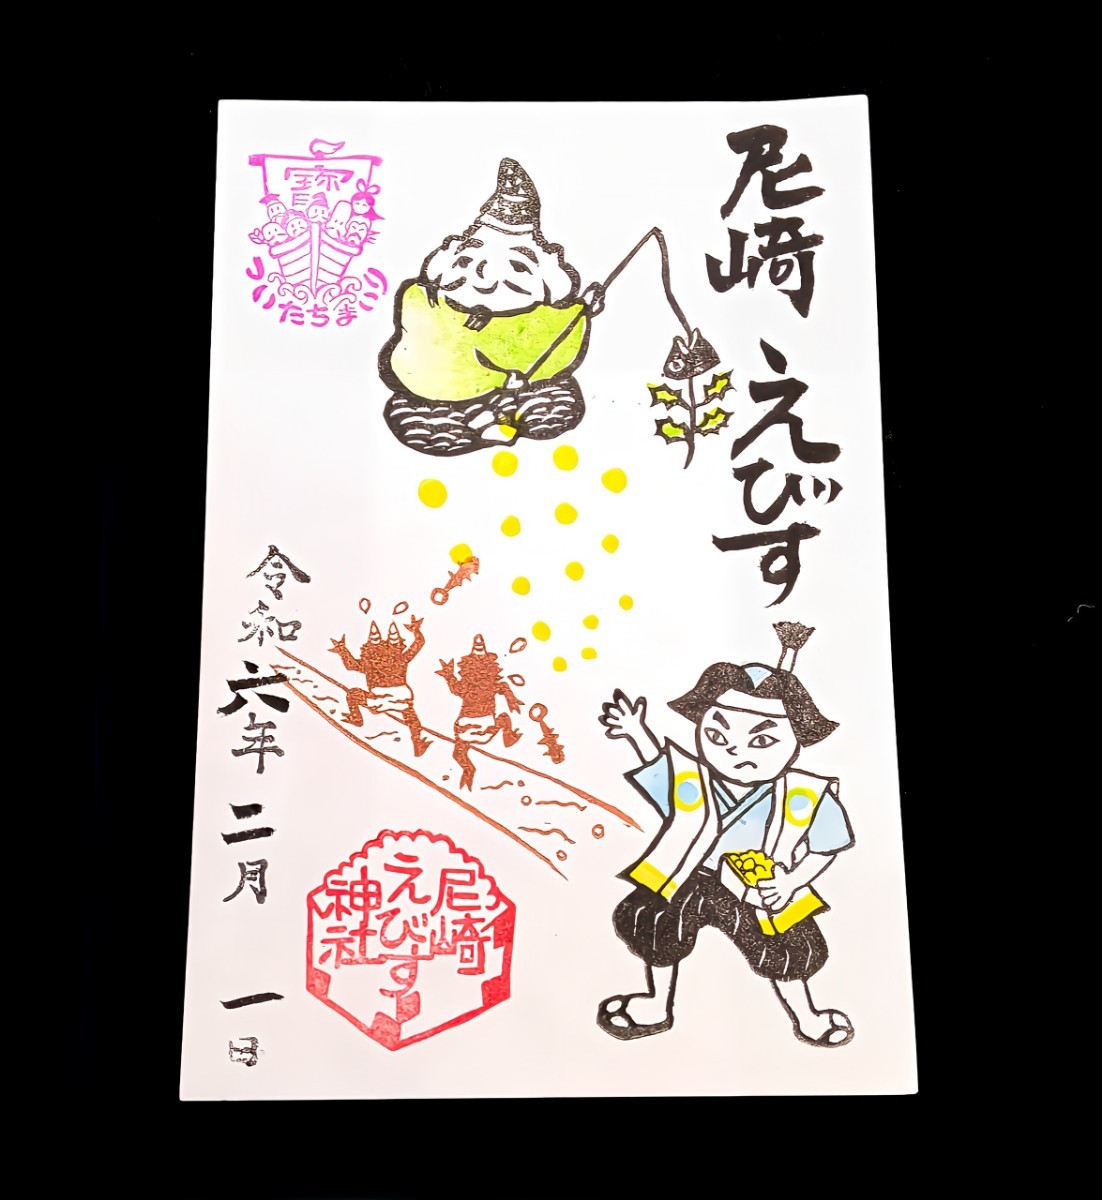 尼崎えびす
寶
ついたちまいり
令和六年二月一日
尼崎
えびす
神社